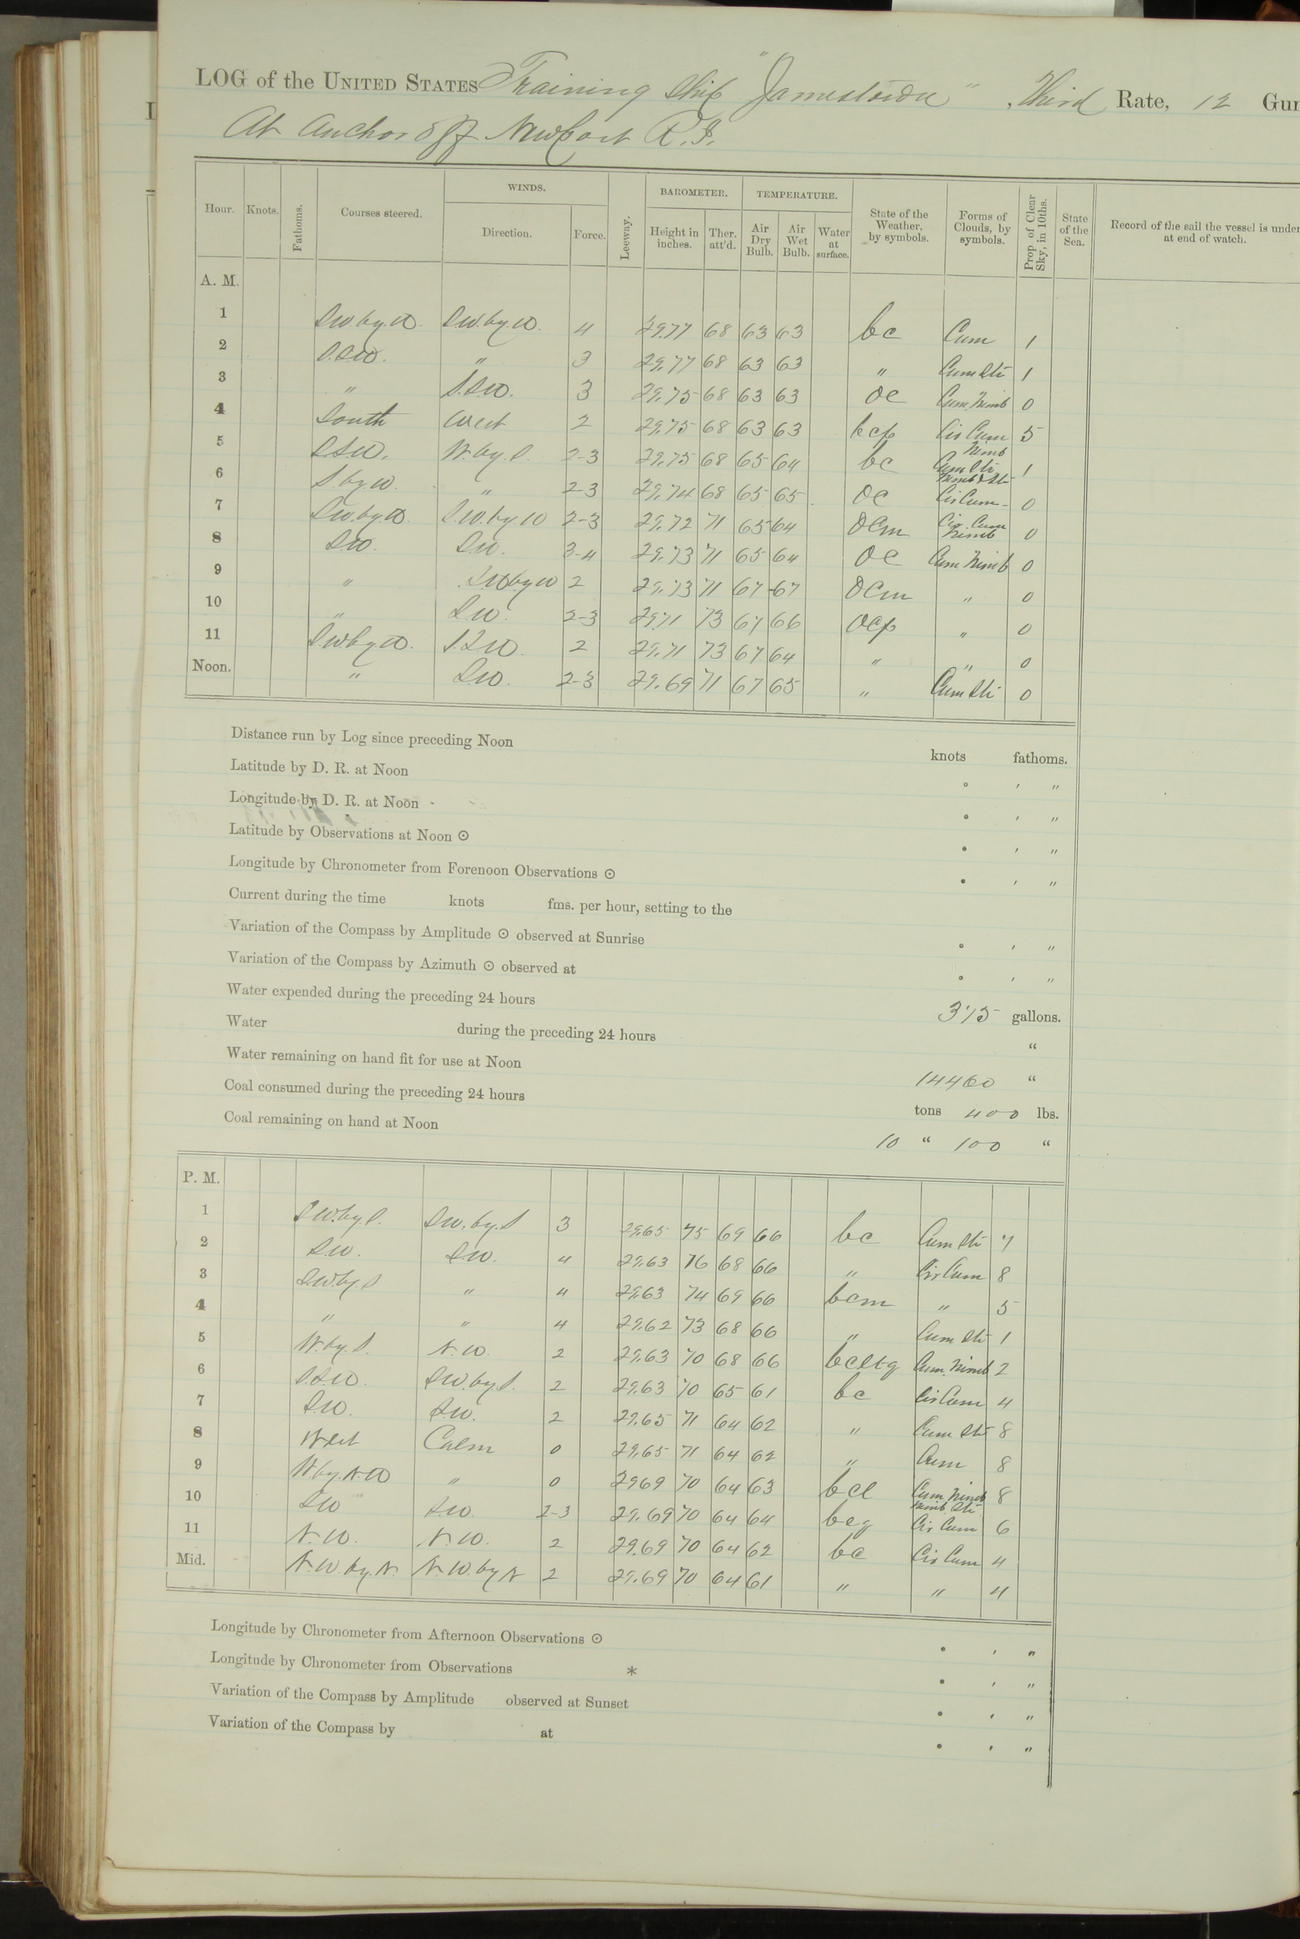 LOG of the UNITED STATES Training Ship "Jamestown", Third Rate, 12 Gun
At Anchor off Newport R.I.
Hour. Knots. Fathoms. Courses steered. WINDS. Direction. Force. Leeway. BAROMETER. Height in inches. Ther. att'd. TEMPERATURE. Air Dry Bulb. Air Wet Bulb. Water at surface. State of the Weather, by symbols. Forms of Clouds, by symbols. Prop. of Clear Sky, in 10ths. State of the Sea. Record of the sail the vessel is under at end of watch.
A. M.
1 SW by W. SW. by W. 4 29.77 68 63 63 bc Cum 1
2 S.S.W. " 3 29.77 68 63 63 " Cum Sti 1
3 " S.S.W. 3 29.75 68 63 63 oc Cum. Nimb 0
4 South West 2 29.75 68 63 63 bcp Cir Cum Nimb 5
5 S.S.W. W. by S. 2-3 29.75 68 65 64 bc Cum Sti 1
6 S by W. " 2-3 29.74 68 65 65 oc Nimb & Sti Cir Cum 0
7 SW. by W. S.W. by W 2-3 29.72 71 65 64 ocm Cir. Cum Nimb 0
8 SW. SW. 3-4 29.73 71 65 64 oc Cum Nimb 0
9 " SW by W 2 29.73 71 67 67 ocm " 0
10 " S.W. 2-3 29.71 73 67 66 ocp " 0
11 SW by W. S.S.W. 2 29.71 73 67 64 " " 0
Noon. " S.W. 2-3 29.69 71 67 65 " Cum Sti 0
Distance run by Log since preceding Noon knots fathoms.
Latitude by D. R. at Noon ° ′ ″
Longitude by D. R. at Noon ° ′ ″
Latitude by Observations at Noon ⊙ ° ′ ″
Longitude by Chronometer from Forenoon Observations ⊙ ° ′ ″
Current during the time knots fms. per hour, setting to the
Variation of the Compass by Amplitude ⊙ observed at Sunrise ° ′ ″
Variation of the Compass by Azimuth ⊙ observed at ° ′ ″
Water expended during the preceding 24 hours 375 gallons.
Water during the preceding 24 hours "
Water remaining on hand fit for use at Noon 14460 "
Coal consumed during the preceding 24 hours tons 400 lbs.
Coal remaining on hand at Noon 10 " 100 "
P. M.
1 SW. by S. SW. by S 3 29.65 75 69 66 bc Cum Sti 7
2 S.W. S.W. 4 29.63 76 68 66 " Cir Cum 8
3 SW by S " 4 29.63 74 69 66 bcm " 5
4 " " 4 29.62 73 68 66 " Cum Sti 1
5 W. by S. N.W. 2 29.63 70 68 66 bcltg Cum. Nimb 2
6 S.S.W. SW. by S. 2 29.63 70 65 61 bc Cir Cum 4
7 S.W. S.W. 2 29.65 71 64 62 " Cum Sti 8
8 West Calm 0 29.65 71 64 62 " Cum 8
9 W by N.W " 0 29.69 70 64 63 bcl Cum Nimb 8
10 SW S.W. 2-3 29.69 70 64 64 bcg Nimb. Sti Cir Cum 6
11 N.W. N.W. 2 29.69 70 64 62 bc Cir Cum 4
Mid. N.W. by N. N.W. by N 2 29.69 70 64 61 " " 4
Longitude by Chronometer from Afternoon Observations ⊙ ° ′ ″
Longitude by Chronometer from Observations * ° ′ ″
Variation of the Compass by Amplitude observed at Sunset ° ′ ″
Variation of the Compass by at ° ′ ″